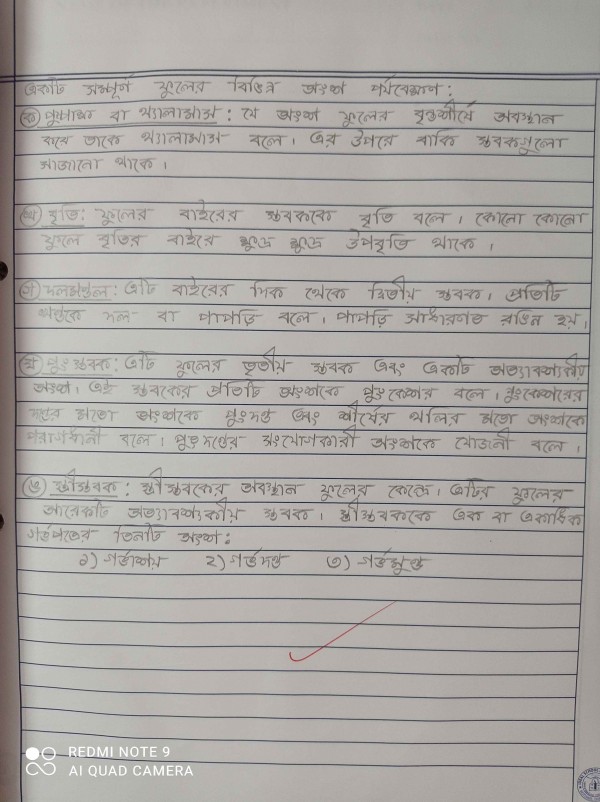 একটি সম্পূর্ণ ফুলের বিভিন্ন অংশ পর্যবেক্ষণ:
(ক) পুষ্পাক্ষ বা থ্যালামাস: যে অংশ ফুলের বৃন্তশীর্ষে অবস্থান
করে তাকে থ্যালামাস বলে। এর উপরে বাকি স্তবকগুলো
সাজানো থাকে।
(খ) বৃতি: ফুলের বাইরের স্তবককে বৃতি বলে। কোনো কোনো
ফুলে বৃতির বাইরে ক্ষুদ্র ক্ষুদ্র উপবৃতি থাকে।
(গ) দলমণ্ডল: এটি বাইরের দিক থেকে দ্বিতীয় স্তবক। প্রতিটি
খণ্ডকে দল বা পাপড়ি বলে। পাপড়ি সাধারণত রঙিন হয়।
(ঘ) পুংস্তবক: এটি ফুলের তৃতীয় স্তবক এবং একটি অত্যাবশ্যকীয়
অংশ। এই স্তবকের প্রতিটি অংশকে পুংকেশর বলে। পুংকেশরের
দণ্ডের মতো অংশকে পুংদণ্ড এবং শীর্ষের থলির মতো অংশকে
পরাগধানী বলে। পুংদণ্ডের সংযোগকারী অংশকে যোজনী বলে।
(ঙ) স্ত্রীস্তবক: স্ত্রীস্তবকের অবস্থান ফুলের কেন্দ্রে। এটির ফুলের
আরেকটি অত্যাবশ্যকীয় স্তবক। স্ত্রীস্তবককে এক বা একাধিক
গর্ভপত্রের তিনটি অংশ:
১) গর্ভাশয় ২) গর্ভদণ্ড ৩) গর্ভমুণ্ড
REDMI NOTE 9
AI QUAD CAMERA